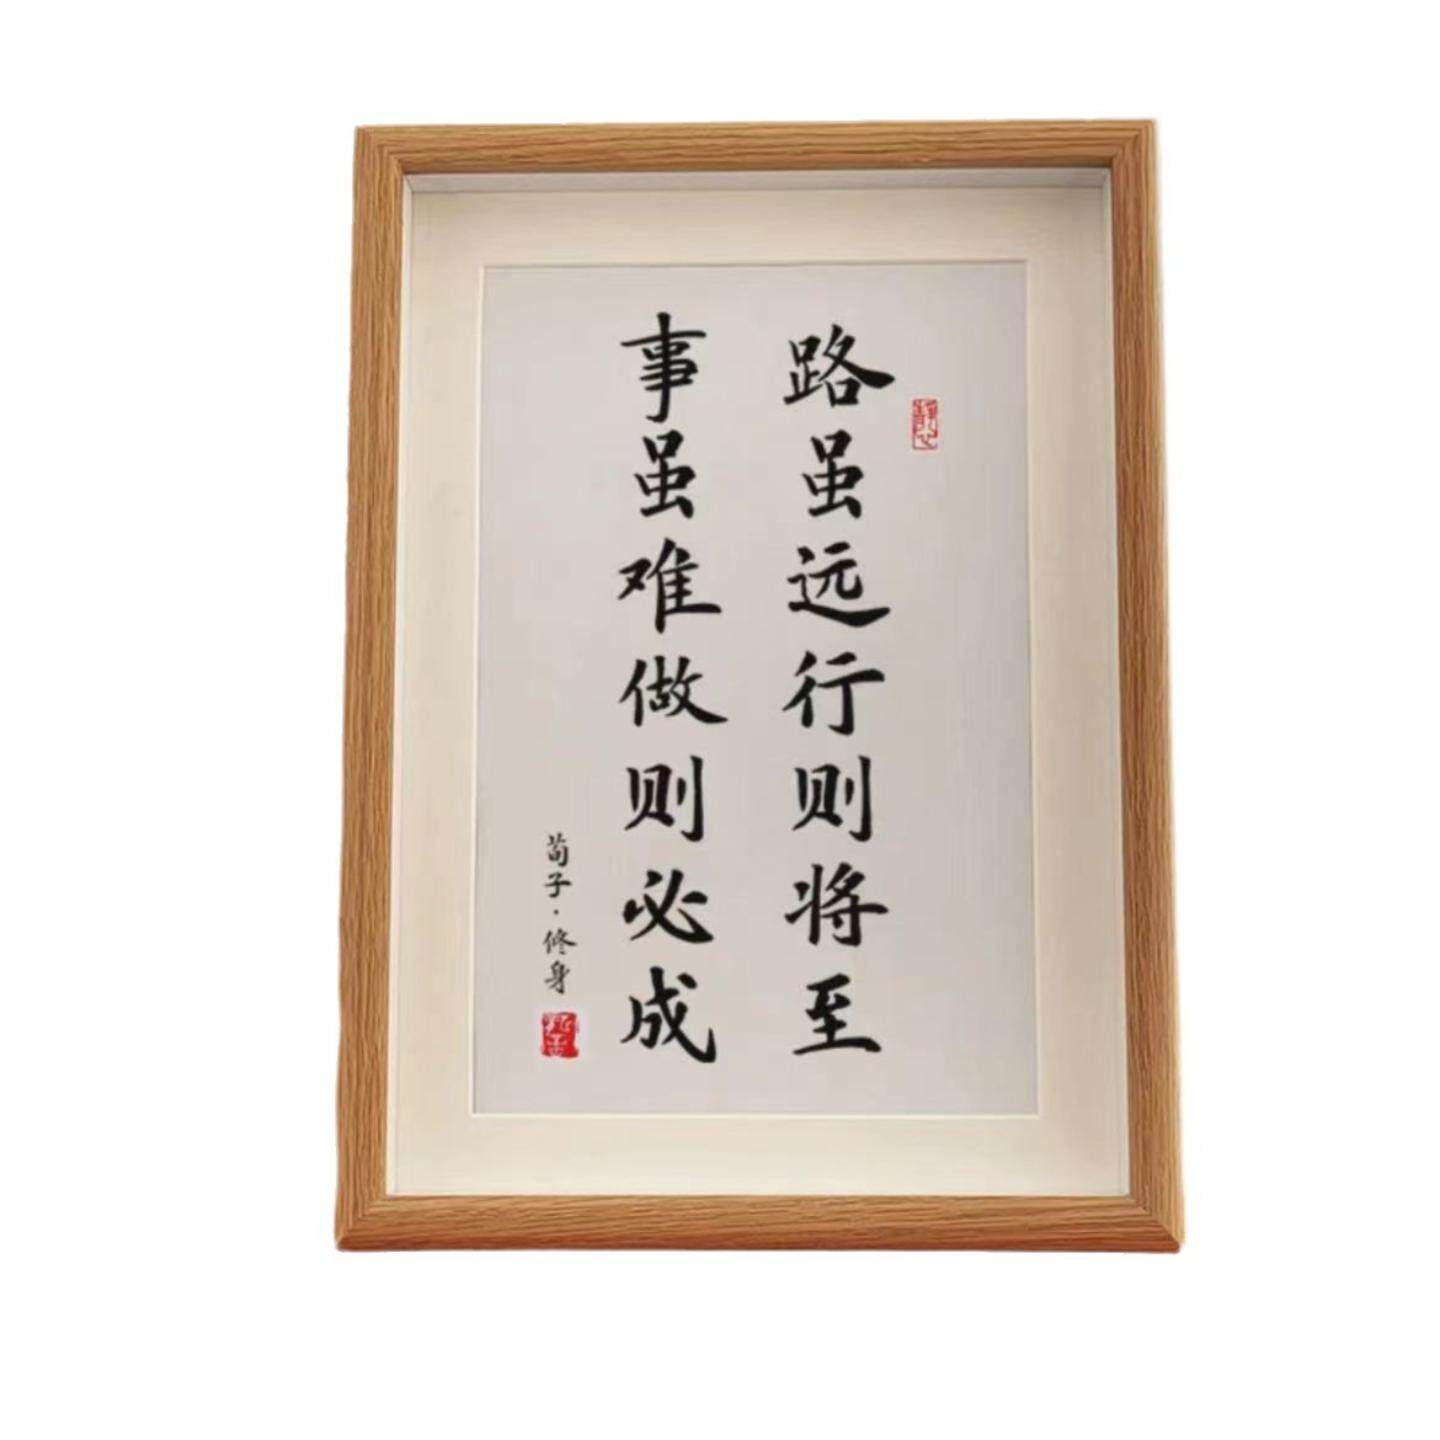 路虽远行则将至
事虽难做则必成
荀子·修身
静心